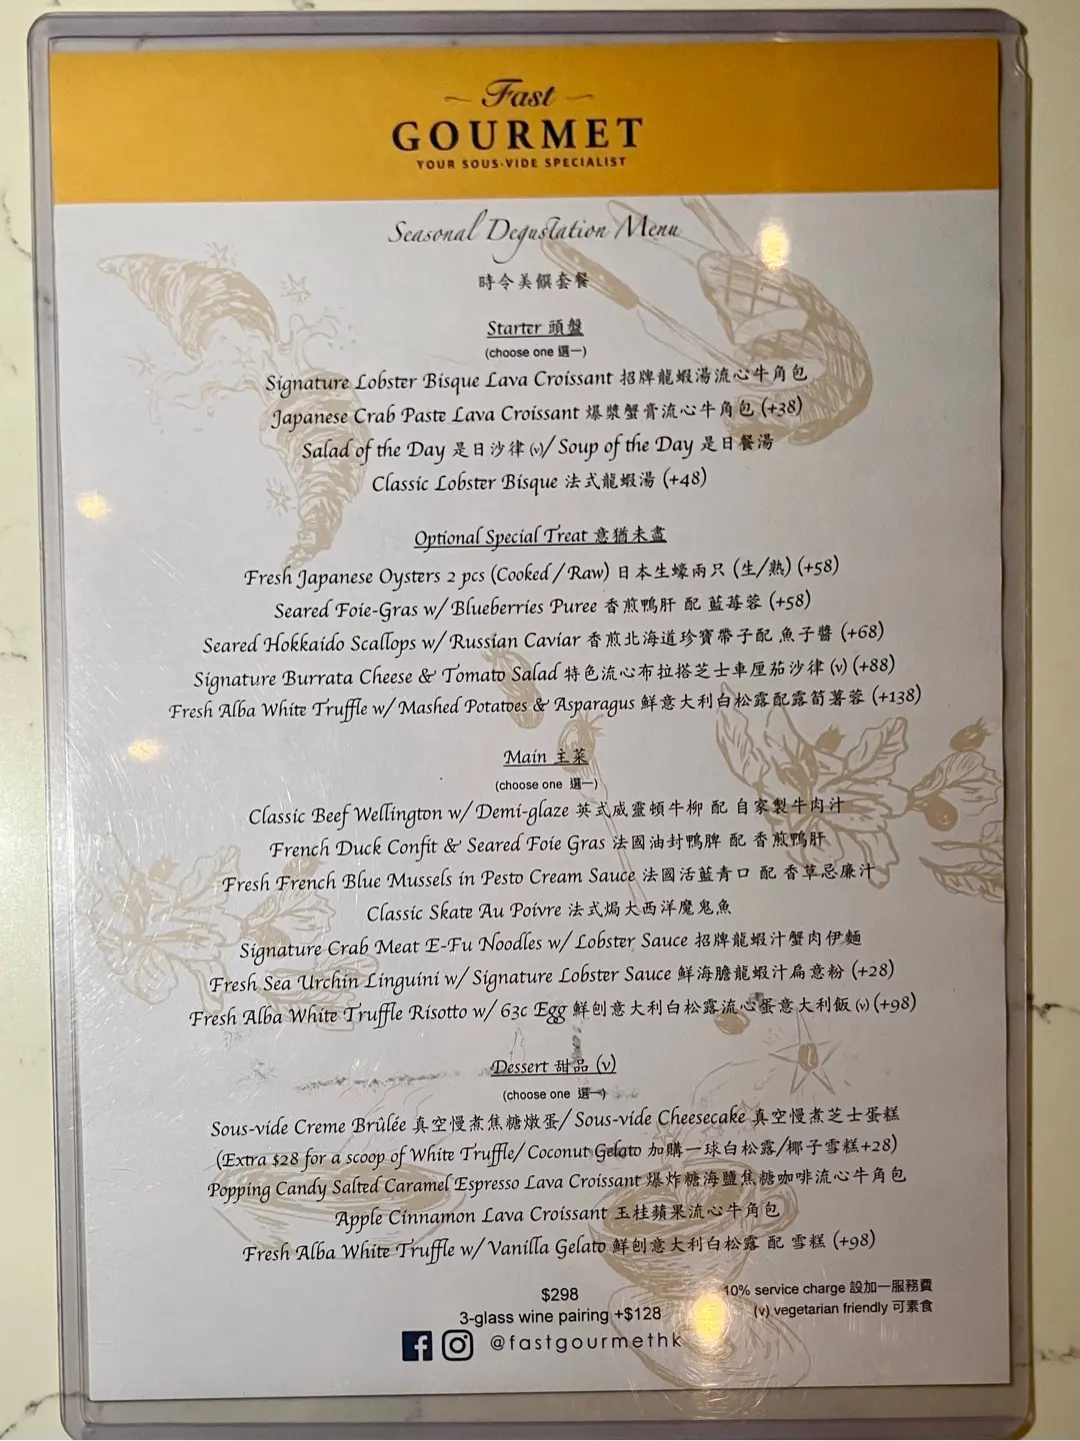 Fast
GOURMET
YOUR SOUS-VIDE SPECIALIST
Seasonal Degustation Menu
時令美饌套餐
Starter 頭盤
(choose one 選一)
Signature Lobster Bisque Lava Croissant 招牌龍蝦湯流心牛角包
Japanese Crab Paste Lava Croissant 爆漿蟹膏流心牛角包 (+38)
Salad of the Day 是日沙律 (v)/ Soup of the Day 是日餐湯
Classic Lobster Bisque 法式龍蝦湯 (+48)
Optional Special Treat 意猶未盡
Fresh Japanese Oysters 2 pcs (Cooked / Raw) 日本生蠔兩只 (生/熟) (+58)
Seared Foie-Gras w/ Blueberries Puree 香煎鴨肝 配 藍莓蓉 (+58)
Seared Hokkaido Scallops w/ Russian Caviar 香煎北海道珍寶帶子配 魚子醬 (+68)
Signature Burrata Cheese & Tomato Salad 特色流心布拉搭芝士車厘茄沙律 (v) (+88)
Fresh Alba White Truffle w/ Mashed Potatoes & Asparagus 鮮意大利白松露配露筍薯蓉 (+138)
Main 主菜
(choose one 選一)
Classic Beef Wellington w/ Demi-glaze 英式威靈頓牛柳 配 自家製牛肉汁
French Duck Confit & Seared Foie Gras 法國油封鴨脾 配 香煎鴨肝
Fresh French Blue Mussels in Pesto Cream Sauce 法國活藍青口 配 香草忌廉汁
Classic Skate Au Poivre 法式焗大西洋魔鬼魚
Signature Crab Meat E-Fu Noodles w/ Lobster Sauce 招牌龍蝦汁蟹肉伊麵
Fresh Sea Urchin Linguini w/ Signature Lobster Sauce 鮮海膽龍蝦汁扁意粉 (+28)
Fresh Alba White Truffle Risotto w/ 63c Egg 鮮刨意大利白松露流心蛋意大利飯 (v) (+98)
Dessert 甜品 (v)
(choose one 選一)
Sous-vide Creme Brûlée 真空慢煮焦糖燉蛋/ Sous-vide Cheesecake 真空慢煮芝士蛋糕
(Extra $28 for a scoop of White Truffle/ Coconut Gelato 加購一球白松露/椰子雪糕+28)
Popping Candy Salted Caramel Espresso Lava Croissant 爆炸糖海鹽焦糖咖啡流心牛角包
Apple Cinnamon Lava Croissant 玉桂蘋果流心牛角包
Fresh Alba White Truffle w/ Vanilla Gelato 鮮刨意大利白松露 配 雪糕 (+98)
$298
10% service charge 設加一服務費
3-glass wine pairing +$128
(v) vegetarian friendly 可素食
@fastgourmethk